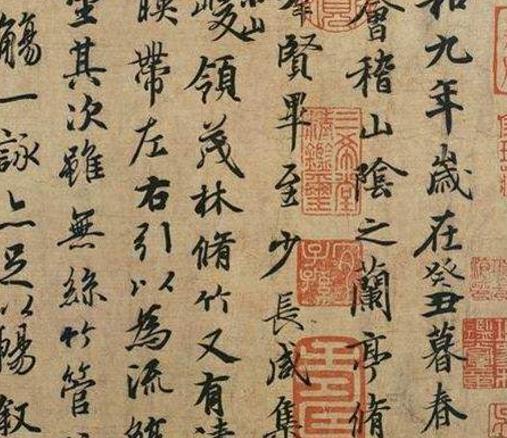 和九年歲在癸丑暮春
會稽山陰之蘭亭脩
羣賢畢至少長咸集
山
峻領茂林脩竹又有清
暎帶左右引以為流觴
坐其次雖無絲竹管
觴一詠亦足以暢敘
三希堂精鑑璽
宜子孫